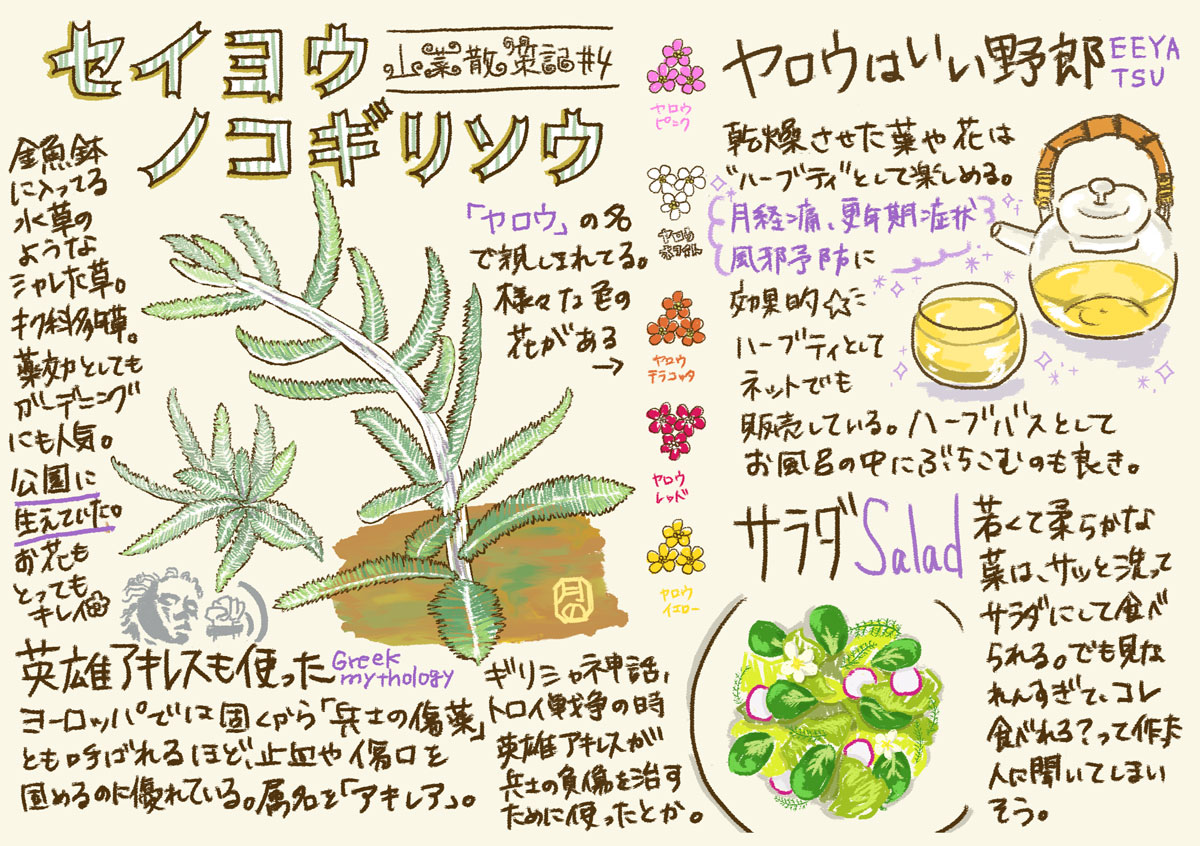 セイヨウ
ノコギリソウ
山菜散策記#4
金魚鉢
に入ってる
水草の
ような
シャレた草。
キク科多年草。
薬効としても
ガーデニング
にも人気。
公園に
生えていた。
お花も
とっても
キレイ
「ヤロウ」の名
で親しまれてる。
様々な色の
花がある
→
ヤロウ
ピンク
ヤロウ
ホワイト
ヤロウ
テラコッタ
ヤロウ
レッド
ヤロウ
イエロー
月の
英雄アキレスも使った
Greek
mythology
ヨーロッパでは古くから「兵士の傷薬」
とも呼ばれるほど、止血や傷口を
固めるのに優れている。属名を「アキレア」。
ギリシャ神話、
トロイ戦争の時
英雄アキレスが
兵士の負傷を治す
ために使ったとか。
ヤロウはいい野郎
EEYA
TSU
乾燥させた葉や花は
"ハーブティ"として楽しめる。
月経痛、更年期症状
風邪予防に
効果的☆に
ハーブティとして
ネットでも
販売している。ハーブバスとして
お風呂の中にぶちこむのも良き。
サラダ Salad
若くて柔らかな
葉は、サッと洗って
サラダにして食べ
られる。でも見な
れんすぎて、コレ
食べれる?って作った
人に聞いてしまい
そう。